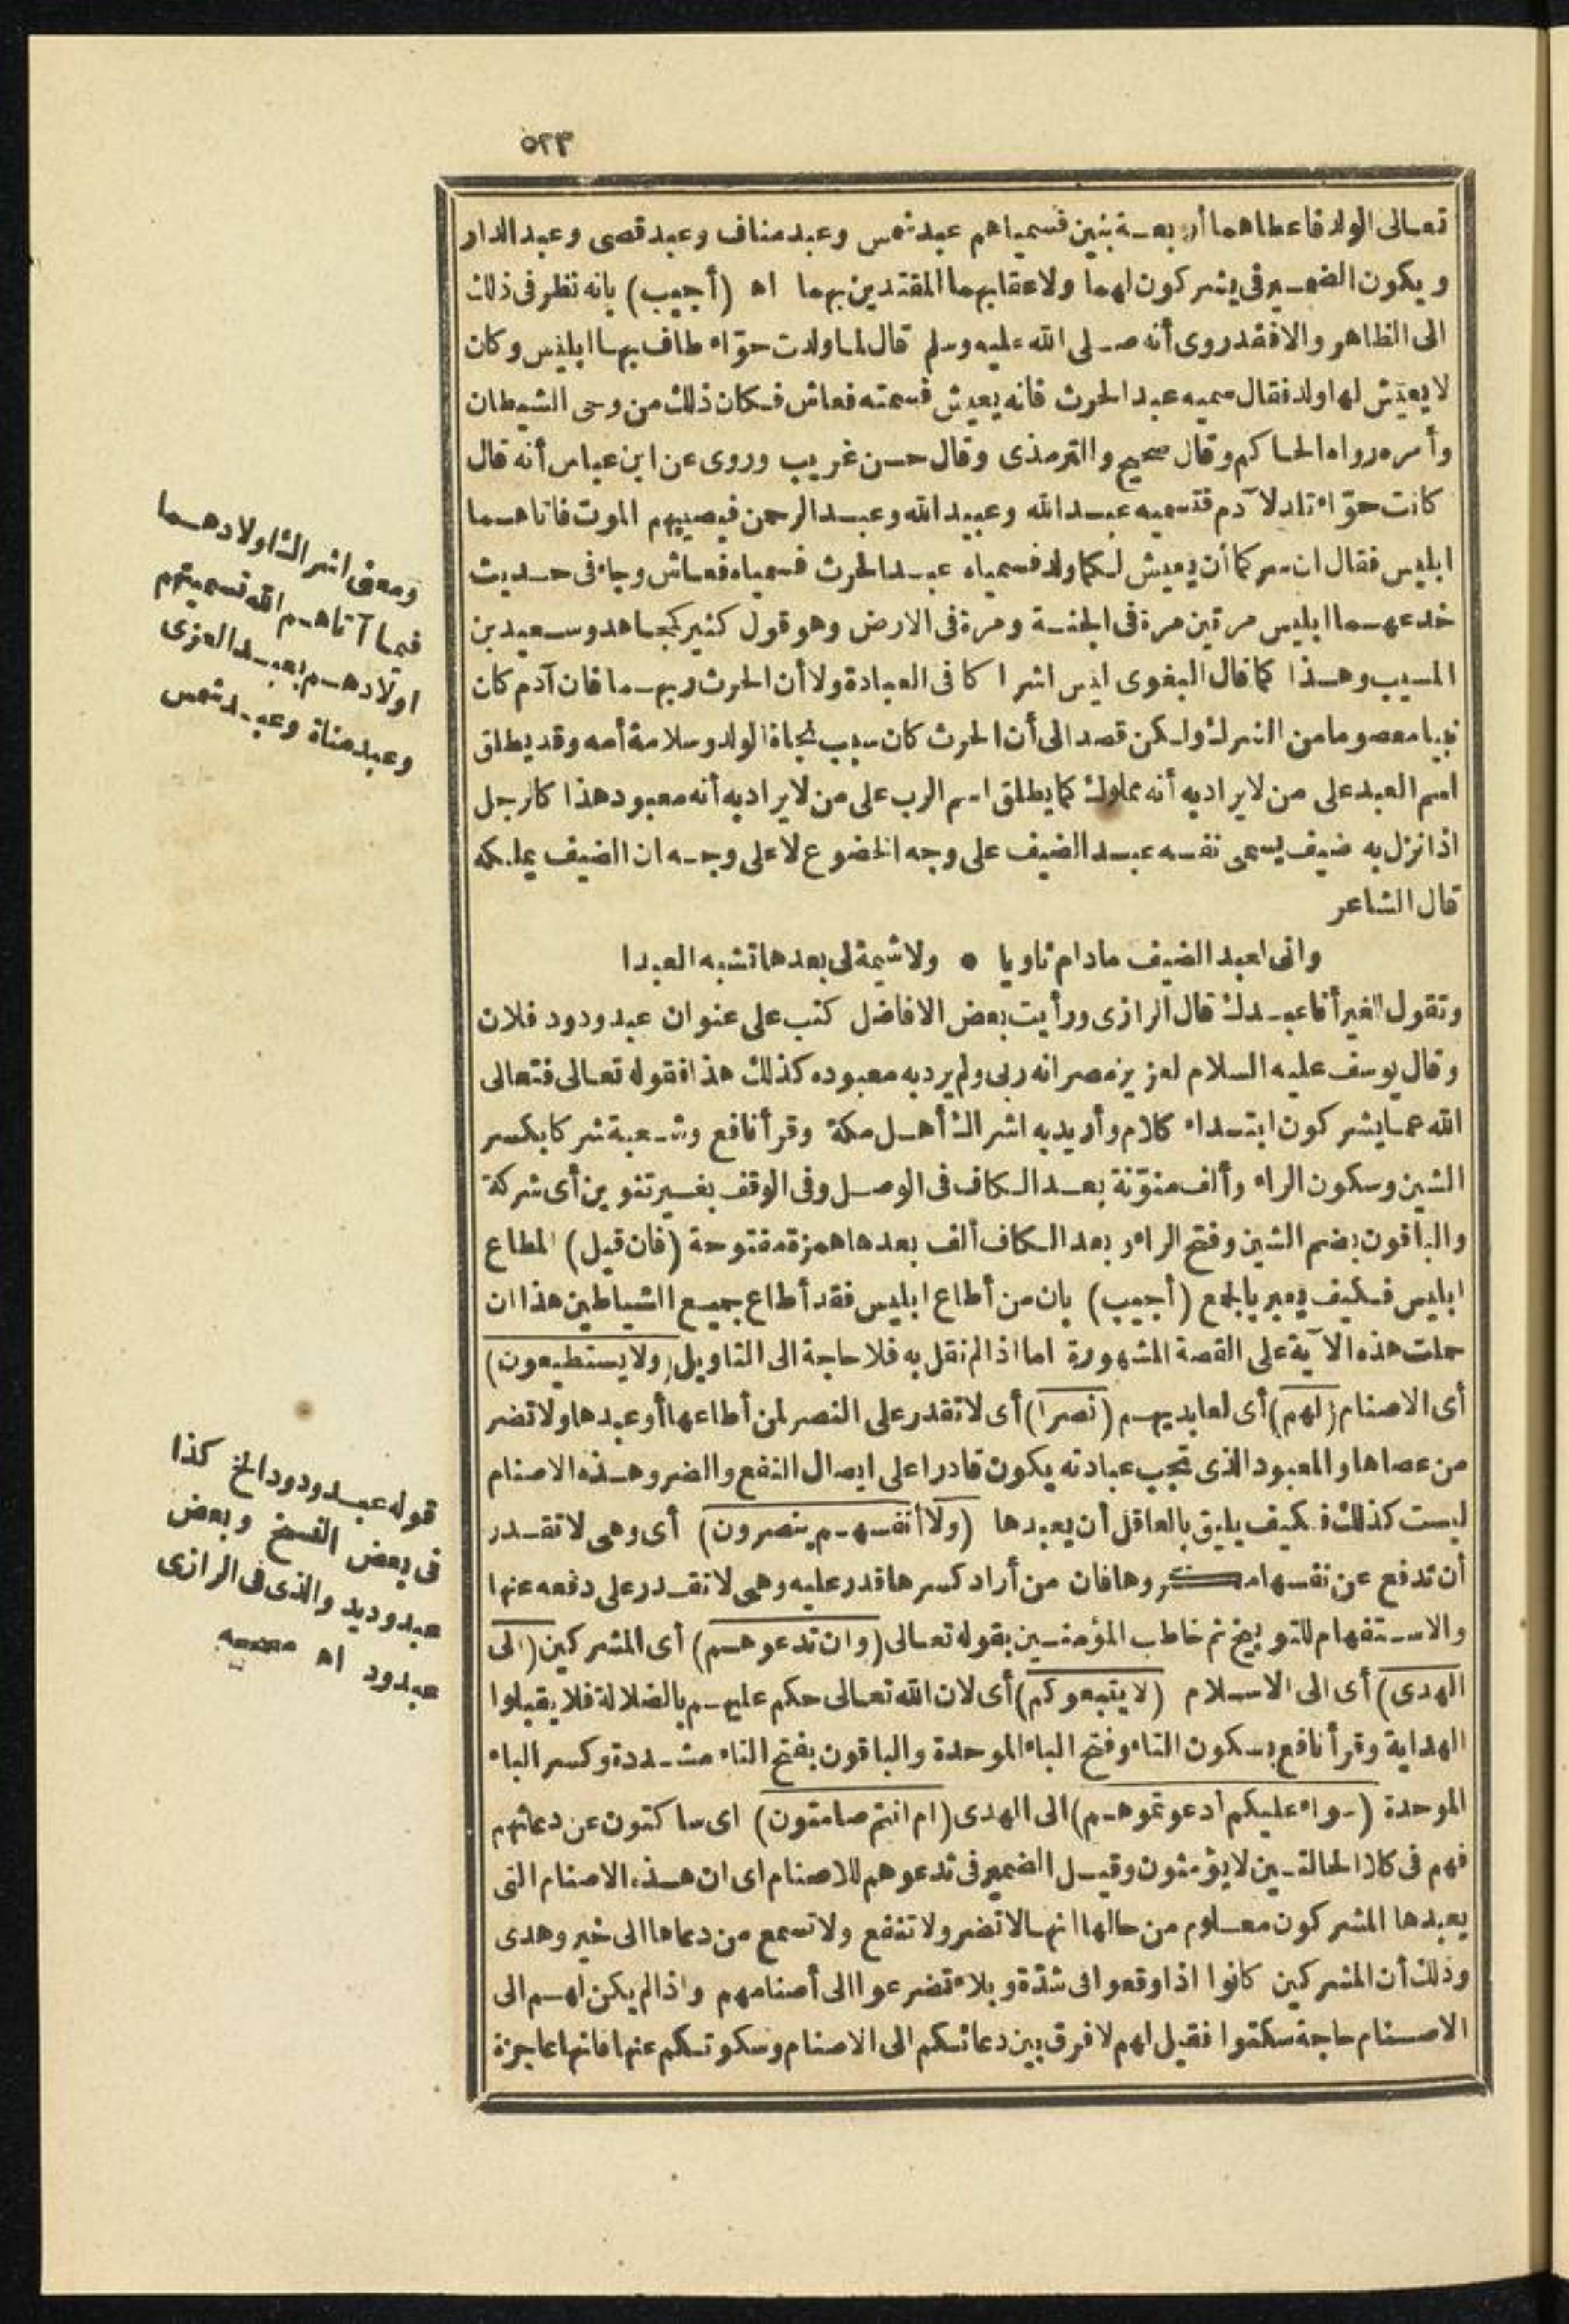 ٥٢٣
تعالى الولد فاعطاهما أربعة بنين فسمياهم عبد شمس وعبد مناف وعبد قصى وعبد الدار
ويكون الضمير فى يشركون لهما ولاعقابهما المقتدين بهما اه (أجيب) بانه نظر فى ذلك
الى الظاهر والا فقد روى أنه صلى الله عليه وسلم قال لما ولدت حوّاء طاف بها ابليس وكان
لا يعيش لها ولد فقال سميه عبد الحرث فانه يعيش فسمته فعاش فكان ذلك من وحى الشيطان
وأمره رواه الحاكم وقال صحيح والترمذى وقال حسن غريب وروى عن ابن عباس أنه قال
كانت حوّاء تلد لآدم فتسميه عبد الله وعبيد الله وعبد الرحمن فيصيبهم الموت فاتاهما
ابليس فقال ان سركما أن يعيش لكما ولد فسمياه عبد الحرث فسمياه فعاش وجاء فى حديث
خدعهما ابليس مرتين مرة فى الجنة ومرة فى الارض وهو قول كثير كمجاهد وسعيد بن
المسيب وهذا كما قال البغوى ليس اشراكا فى العبادة ولا أن الحرث ربهما فان آدم كان
نبيا معصوما من الشرك ولكن قصد الى أن الحرث كان سبب نجاة الولد وسلامة أمه وقد يطلق
اسم العبد على من لا يراد به أنه مملوك كما يطلق اسم الرب على من لا يراد به أنه معبود هذا كالرجل
اذا نزل به ضيف يسمى نفسه عبد الضيف على وجه الخضوع لا على وجه ان الضيف يملكه
قال الشاعر
وانى لعبد الضيف مادام ثاويا • ولا شيمة لى بعدها تشبه العبدا
وتقول للغير أنا عبدك قال الرازى ورأيت بعض الافاضل كتب على عنوان عبد ودود فلان
وقال يوسف عليه السلام لعزيز مصر انه ربى ولم يرد به معبوده كذلك هذا فقوله تعالى فتعالى
الله عما يشركون ابتداء كلام وأريد به اشراك أهل مكة وقرأ نافع وشعبة شركا بكسر
الشين وسكون الراء وألف منوّنة بعد الكاف فى الوصل وفى الوقف بغير تنوين أى شركة
والباقون بضم الشين وفتح الراء وبعد الكاف ألف بعدها همزة مفتوحة (فان قيل) المطاع
ابليس فكيف يعبر بالجمع (أجيب) بان من أطاع ابليس فقد أطاع جميع الشياطين هذا ان
حملت هذه الآية على القصة المشهورة اما اذا لم نقل به فلا حاجة الى التاويل (ولا يستطيعون)
أى الاصنام (لهم) أى لعابديهم (نصرا) أى لا تقدر على النصر لمن أطاعها أو عبدها ولا تضر
من عصاها والمعبود الذى تجب عبادته يكون قادرا على ايصال النفع والضر وهذه الاصنام
ليست كذلك فكيف يليق بالعاقل أن يعبدها (ولا أنفسهم ينصرون) أى وهى لا تقدر
أن تدفع عن نفسها مكروها فان من أراد كسرها قدر عليه وهى لا تقدر على دفعه عنها
والاستفهام للتوبيخ ثم خاطب المؤمنين بقوله تعالى (وان تدعوهم) أى المشركين (الى
الهدى) أى الى الاسلام (لا يتبعوكم) أى لان الله تعالى حكم عليهم بالضلالة فلا يقبلوا
الهداية وقرأ نافع بسكون التاء وفتح الباء الموحدة والباقون بفتح التاء مشددة وكسر الباء
الموحدة (سواء عليكم أدعوتموهم) الى الهدى (ام انتم صامتون) اى ساكتون عن دعائهم
فهم فى كلا الحالتين لا يؤمنون وقيل الضمير فى تدعوهم للاصنام اى ان هذه الاصنام التى
يعبدها المشركون معلوم من حالها انها لا تضر ولا تنفع ولا تسمع من دعاها الى خير وهدى
وذلك أن المشركين كانوا اذا وقعوا فى شدّة وبلاء تضرعوا الى أصنامهم واذا لم يكن لهم الى
الاصنام حاجة سكتوا فقيل لهم لا فرق بين دعائكم الى الاصنام وسكوتكم عنها فانها عاجزة
ومعنى اشراك اولادهما
فيما آتاهم الله تسميتهم
اولادهم بعبد العزى
وعبد مناة وعبد شمس
قوله عبد ودود الخ كذا
فى بعض النسخ وبعض
عبد وديد والذى فى الرازى
عبد ود اه مصححه